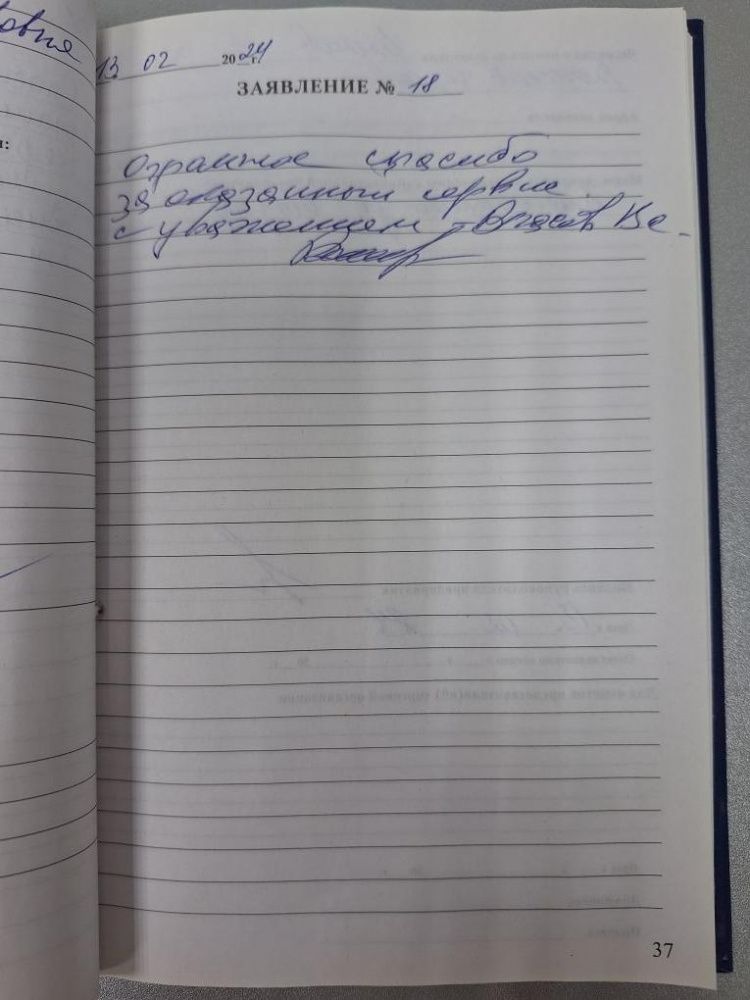 овна
13 02 2024 г.
ЗАЯВЛЕНИЕ № 18
Огромное спасибо
за оказанный сервис.
с уважением Власов Не-
37